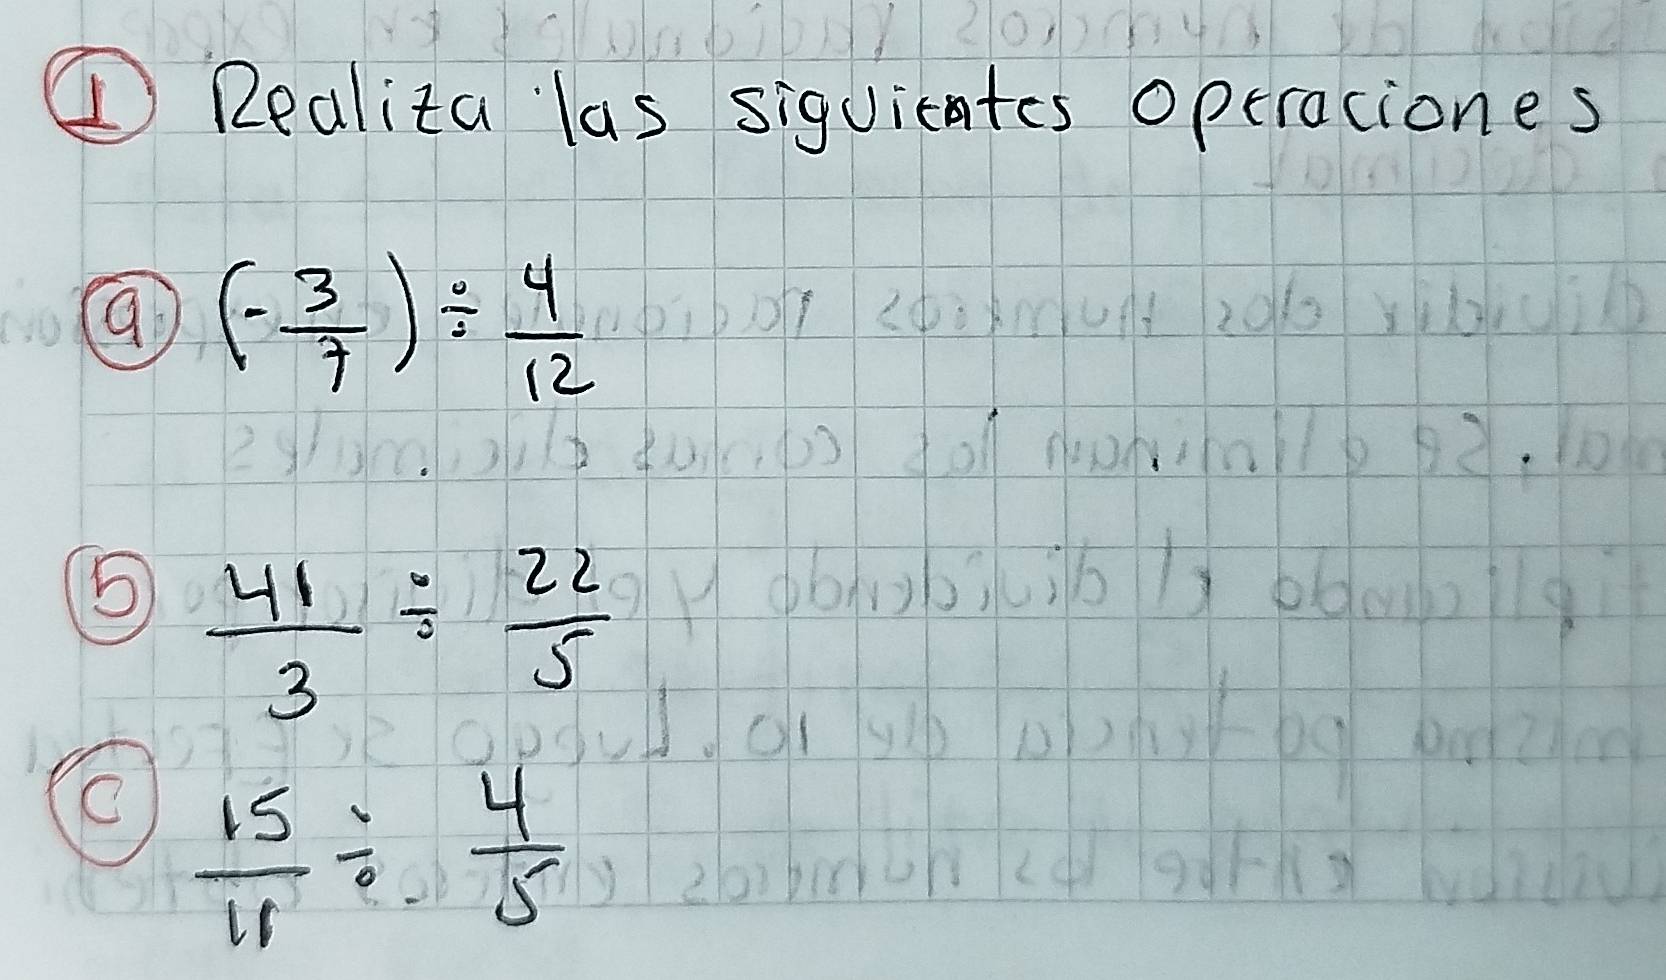 ① Realiza las siguientes operaciones
ⓐ (-3/7) ÷ 4/12
ⓑ 41/3 ÷ 22/5
ⓒ 15/11 ÷ 4/5